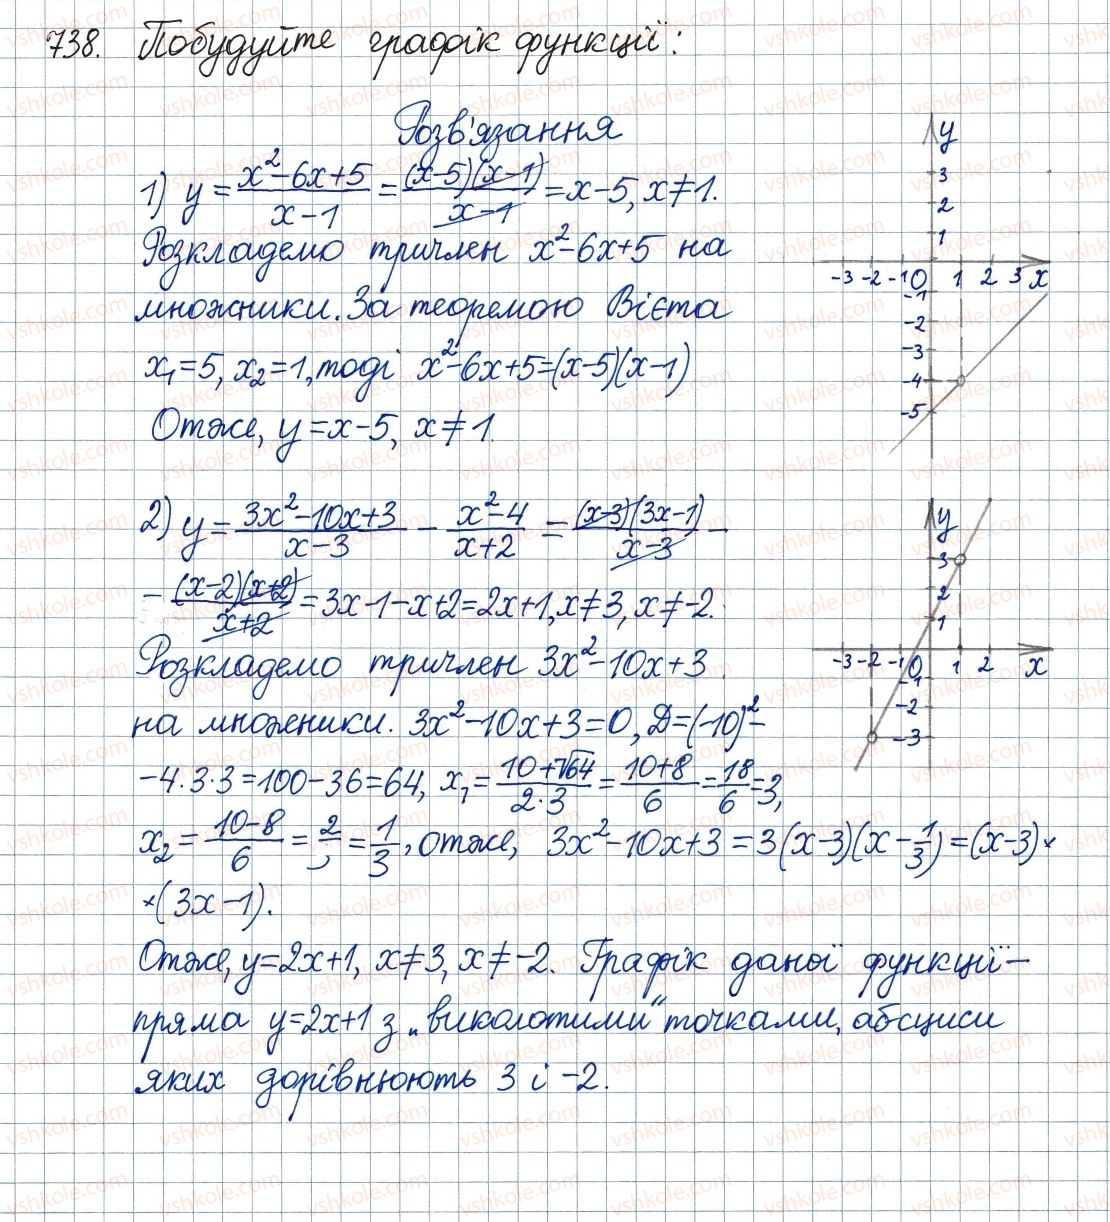 738. Побудуйте графік функції:
Розв'язання
1) y = (x²-6x+5)/(x-1) = ((x-5)(x-1))/(x-1) = x-5, x≠1.
Розкладемо тричлен x²-6x+5 на
множники. За теоремою Вієта
x₁=5, x₂=1, тоді x²-6x+5=(x-5)(x-1)
Отже, y=x-5, x≠1.
y
3
2
1
-3 -2 -1 0 1 2 3 x
-1
-2
-3
-4
-5
2) y = (3x²-10x+3)/(x-3) - (x²-4)/(x+2) = ((x-3)(3x-1))/(x-3) -
- ((x-2)(x+2))/(x+2) = 3x-1-x+2=2x+1, x≠3, x≠-2.
Розкладемо тричлен 3x²-10x+3
на множники. 3x²-10x+3=0, Д=(-10)²-
-4·3·3=100-36=64, x₁ = (10+√64)/(2·3) = (10+8)/6 = 18/6 = 3,
x₂ = (10-8)/6 = 2/ = 1/3, отже, 3x²-10x+3 = 3(x-3)(x-1/3) = (x-3)×
×(3x-1).
Отже, y=2x+1, x≠3, x≠-2. Графік даної функції -
пряма y=2x+1 з „виколотими" точками, абсциси
яких дорівнюють 3 і -2.
y
3
2
1
-3 -2 -1 0 1 2 x
-1
-2
-3
vshkole.com